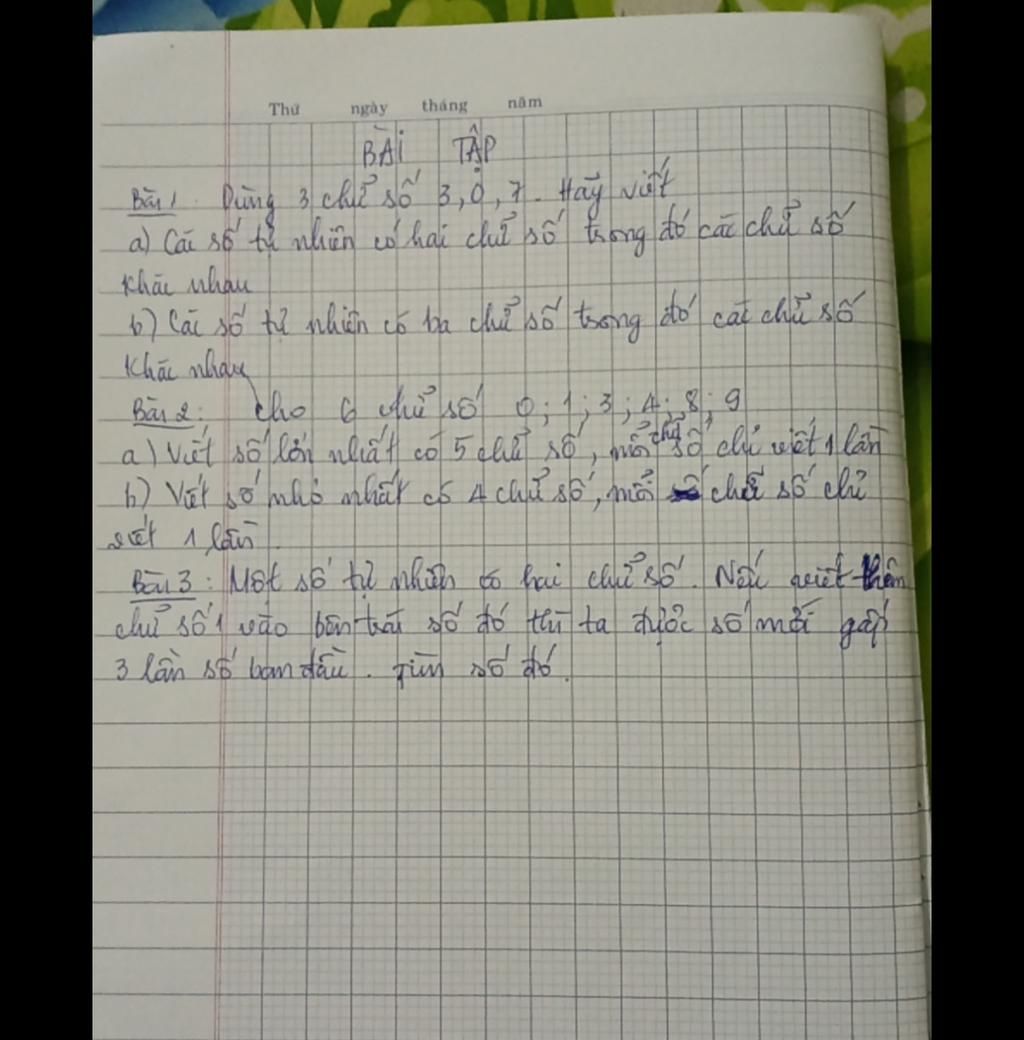 Thứ ngày tháng năm
BÀI TẬP
Bài 1. Dùng 3 chữ số 3, 0, 7. Hãy viết
a) Các số tự nhiên có hai chữ số trong đó các chữ số
khác nhau
b) Các số tự nhiên có ba chữ số trong đó các chữ số
khác nhau
Bài 2: Cho 6 chữ số 0; 1; 3; 4; 8; 9
a) Viết số lớn nhất có 5 chữ số, mỗi chữ số chỉ viết 1 lần
b) Viết số nhỏ nhất có 4 chữ số, mỗi chữ số chỉ
viết 1 lần.
Bài 3: Một số tự nhiên có hai chữ số. Nếu viết thêm
chữ số 1 vào bên trái số đó thì ta được số mới gấp
3 lần số ban đầu. Tìm số đó.